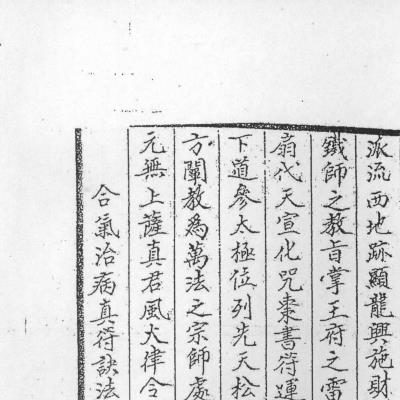 派流西地跡顯龍興施財
鐵師之教旨掌王府之雷
扇代天宣化咒棗書符運
下道參太極位列先天松
方闡教為萬法之宗師處
元無上薩真君風火律令
合氣治病真符訣法